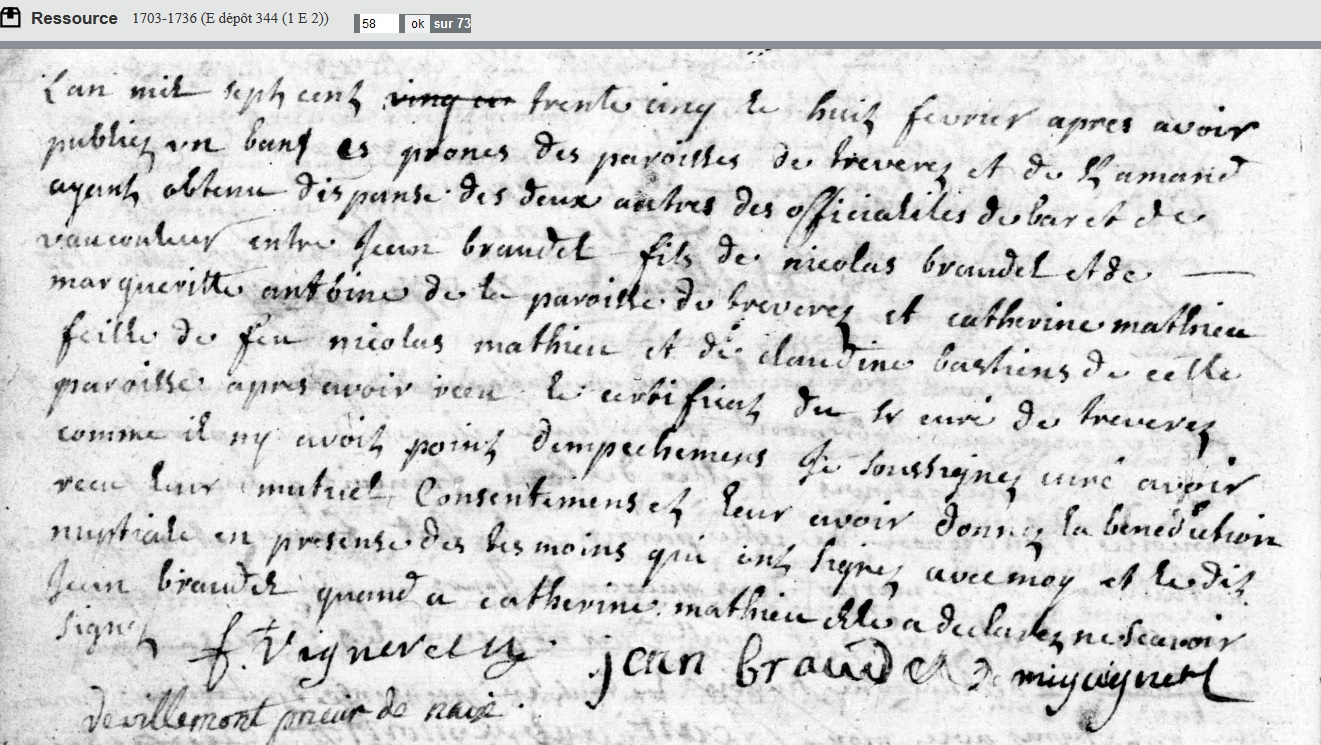 Ressource 1703-1736 (E dépôt 344 (1 E 2)) 58 ok sur 73
L'an mil sept cent trente cinq le huit fevrier apres avoir
publiez un bans es prones des paroisses de treverez et de St amand
ayant obtenu dispense des deux autres des officialités de bar et de
vaucouleur entre Jean braudel fils de nicolas braudel et de
margueritte antoine de la paroisse de treverez et catherine mathieu
feille de feu nicolas mathieu et de claudine bastiens de cette
paroisse apres avoir receu le certificat du sr curé de treverez
comme il ny avoit point dempechemens Je soussignez curé avoir
receu leur mutuel Consentemens et leur avoir donnez la bénédiction
nuptiale en presense des tesmoins qui ont signez avec moy et le dit
Jean braudel quand a catherine mathieu elle a declarez ne scavoir
signez
f. Vigneret jean braudel
de villemont prieur de naix